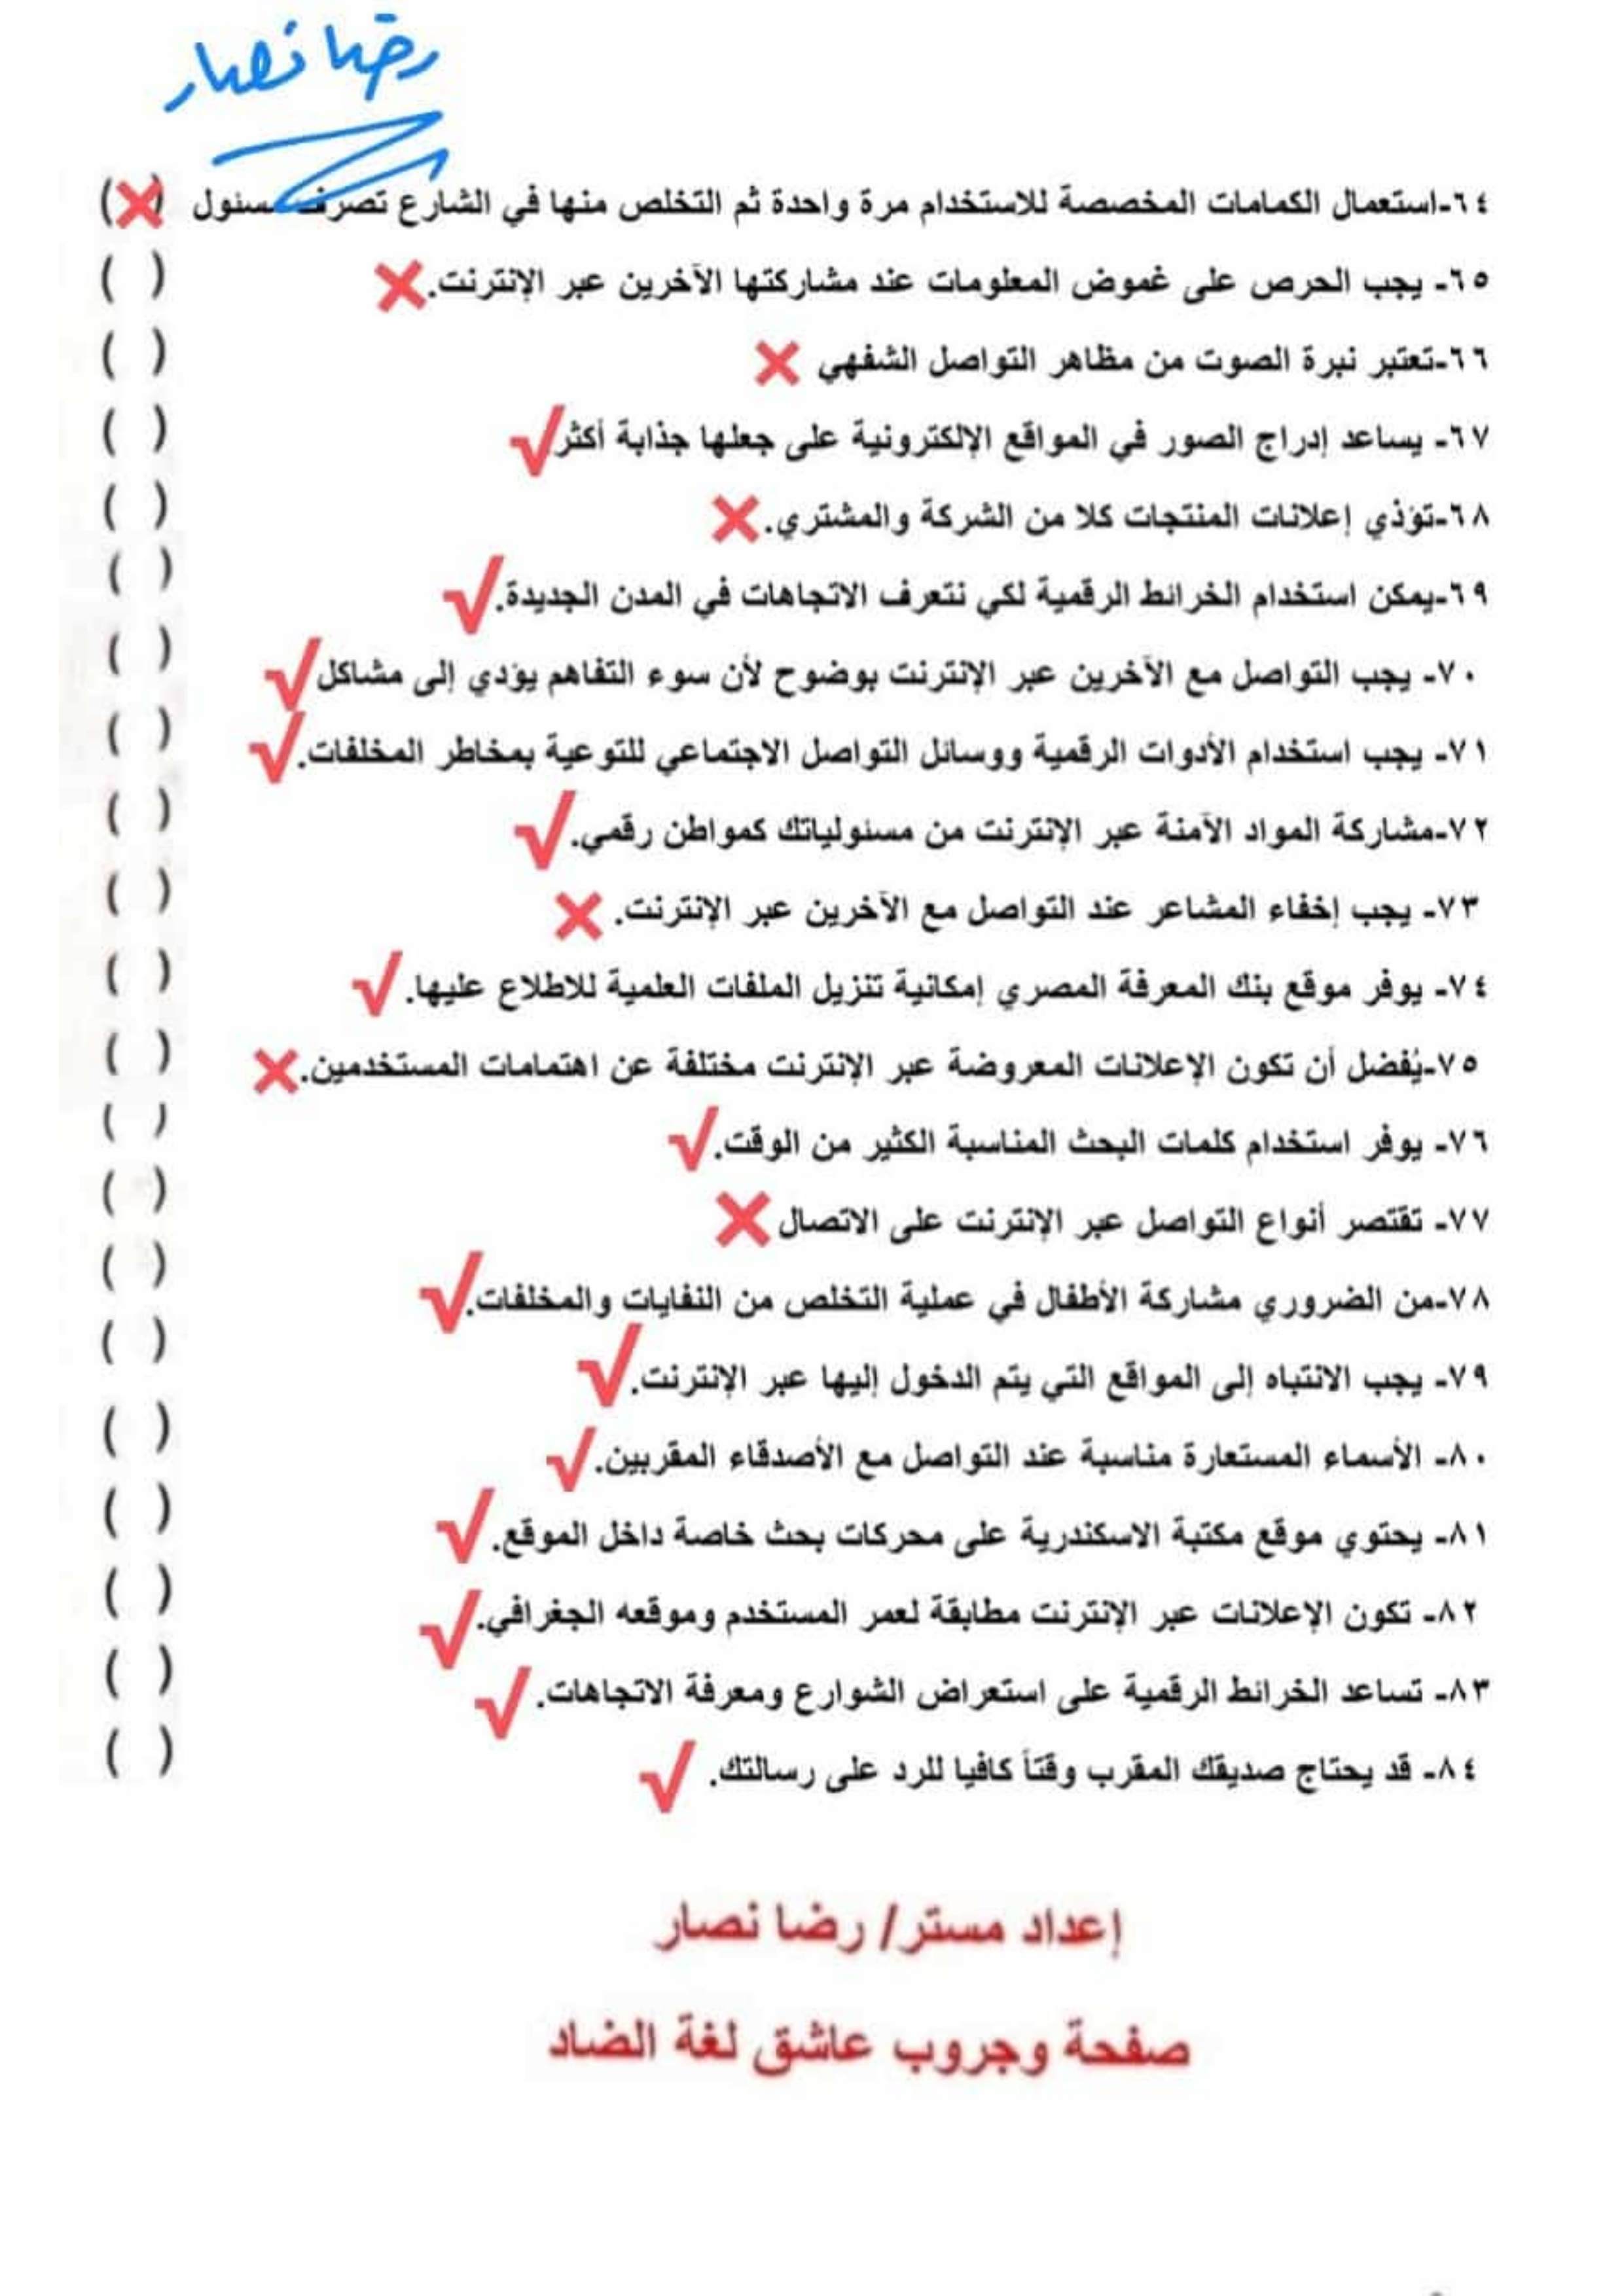 رضا نصار
٦٤-استعمال الكمامات المخصصة للاستخدام مرة واحدة ثم التخلص منها في الشارع تصرف مسئول (❌)
٦٥- يجب الحرص على غموض المعلومات عند مشاركتها الآخرين عبر الإنترنت.❌ ( )
٦٦-تعتبر نبرة الصوت من مظاهر التواصل الشفهي ❌ ( )
٦٧- يساعد إدراج الصور في المواقع الإلكترونية على جعلها جذابة أكثر √ ( )
٦٨-تؤذي إعلانات المنتجات كلا من الشركة والمشتري.❌ ( )
٦٩-يمكن استخدام الخرائط الرقمية لكي نتعرف الاتجاهات في المدن الجديدة.√ ( )
٧٠- يجب التواصل مع الآخرين عبر الإنترنت بوضوح لأن سوء التفاهم يؤدي إلى مشاكل √ ( )
٧١- يجب استخدام الأدوات الرقمية ووسائل التواصل الاجتماعي للتوعية بمخاطر المخلفات.√ ( )
٧٢-مشاركة المواد الآمنة عبر الإنترنت من مسئولياتك كمواطن رقمي.√ ( )
٧٣- يجب إخفاء المشاعر عند التواصل مع الآخرين عبر الإنترنت. ❌ ( )
٧٤- يوفر موقع بنك المعرفة المصري إمكانية تنزيل الملفات العلمية للاطلاع عليها.√ ( )
٧٥-يُفضل أن تكون الإعلانات المعروضة عبر الإنترنت مختلفة عن اهتمامات المستخدمين.❌ ( )
٧٦- يوفر استخدام كلمات البحث المناسبة الكثير من الوقت.√ ( )
٧٧- تقتصر أنواع التواصل عبر الإنترنت على الاتصال ❌ ( )
٧٨-من الضروري مشاركة الأطفال في عملية التخلص من النفايات والمخلفات.√ ( )
٧٩- يجب الانتباه إلى المواقع التي يتم الدخول إليها عبر الإنترنت.√ ( )
٨٠- الأسماء المستعارة مناسبة عند التواصل مع الأصدقاء المقربين.√ ( )
٨١- يحتوي موقع مكتبة الاسكندرية على محركات بحث خاصة داخل الموقع.√ ( )
٨٢- تكون الإعلانات عبر الإنترنت مطابقة لعمر المستخدم وموقعه الجغرافي.√ ( )
٨٣- تساعد الخرائط الرقمية على استعراض الشوارع ومعرفة الاتجاهات.√ ( )
٨٤- قد يحتاج صديقك المقرب وقتاً كافيا للرد على رسالتك. √ ( )
إعداد مستر/ رضا نصار
صفحة وجروب عاشق لغة الضاد